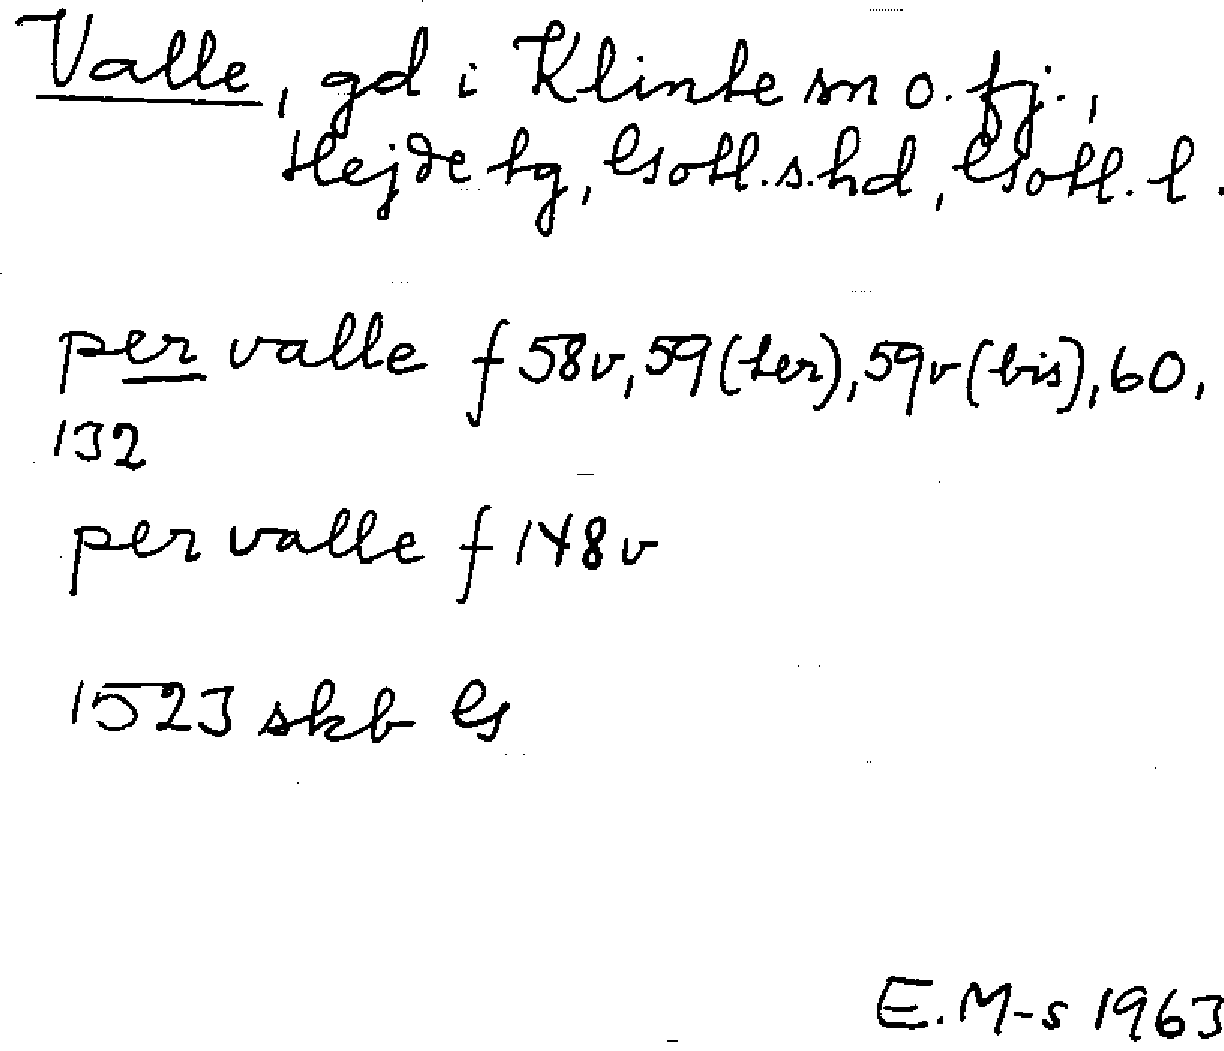 Valle, gd i Klinte sn o. fj.,
Hejde tg, Gotl.s.hd, Gotl. l.
per valle f 58v, 59 (ter), 59v (bis), 60,
132
per valle f 148v
1523 skb G
E. M-s 1963